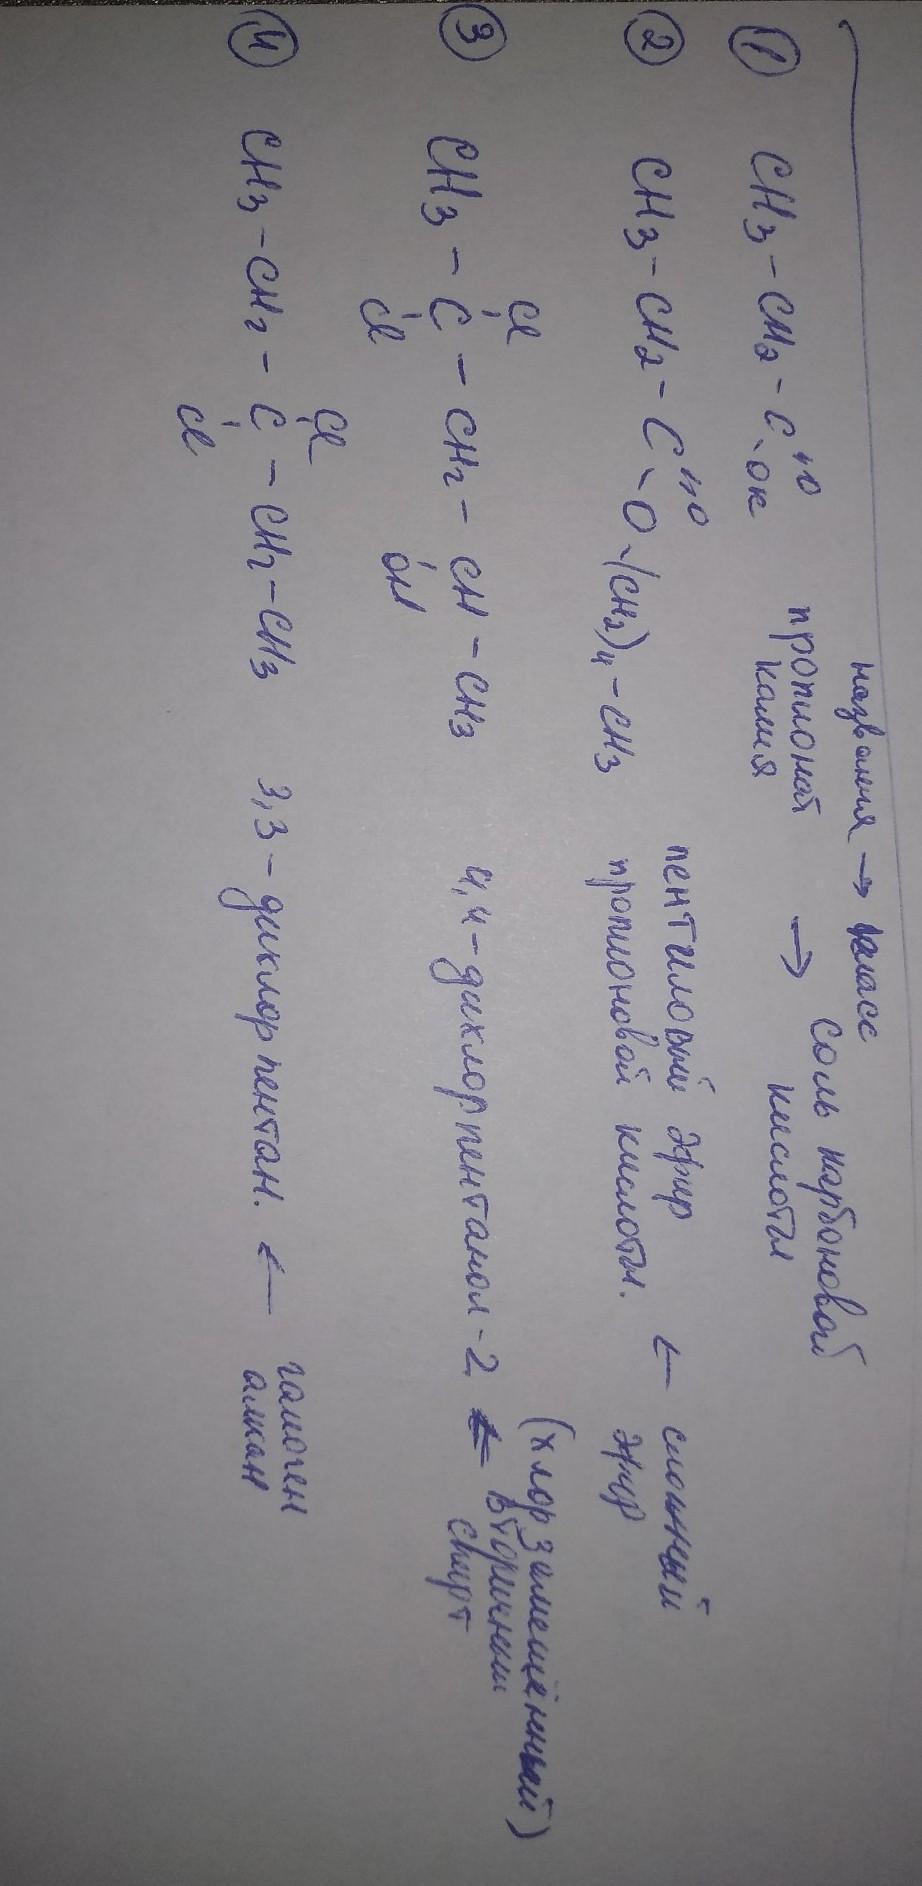 названия → класс
① CH3 – CH2 – C =O – OK пропионат калия → соль карбоновой кислоты
② CH3 – CH2 – C =O – O – (CH2)4 – CH3 пентиловый эфир пропионовой кислоты. ← сложный эфир
Cl
③ CH3 – C – CH2 – CH – CH3 4,4 – дихлорпентанол – 2 ← (хлорзамещённый) вторичный спирт
Cl OH
Cl
④ CH3 – CH2 – C – CH2 – CH3 3,3 – дихлорпентан. ← галоген алкан
Cl